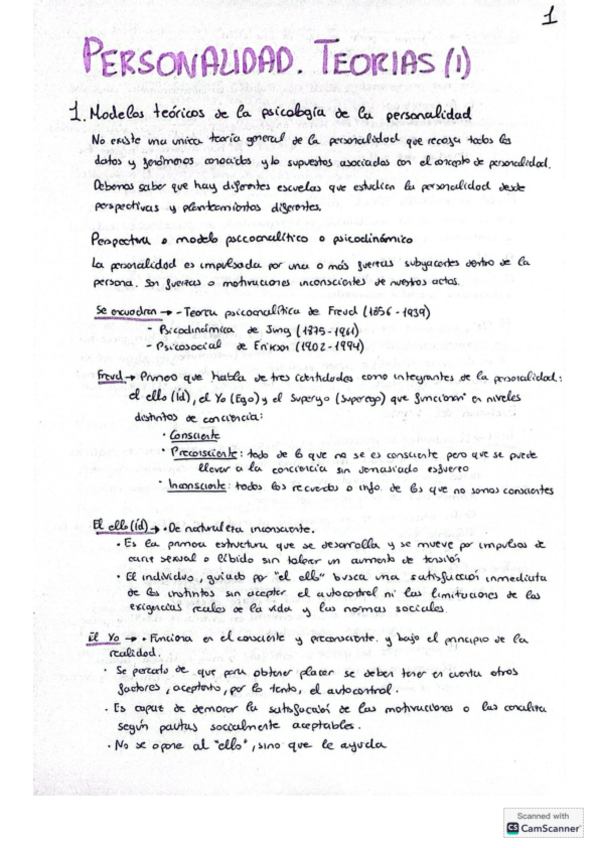 1
PERSONALIDAD. TEORIAS (1)
1. Modelos teóricos de la psicología de la personalidad
No existe una unica teoría general de la personalidad que recoja todos los
datos y fenómenos conocidos y los supuestos asociados con el concepto de personalidad.
Debemos saber que hay diferentes escuelas que estudian la personalidad desde
perspectivas y planteamientos diferentes.
Perspectiva o modelo psicoanalítico o psicodinámico
La personalidad es impulsada por una o más fuerzas subyacentes dentro de la
persona. Son fuerzas o motivaciones inconscientes de nuestros actos.
Se encuadran → - Teoría psicoanalítica de Freud (1856-1939)
- Psicodinámica de Jung (1875-1961)
- Psicosocial de Erikson (1902-1994)
Freud → Primero que habla de tres identidades como integrantes de la personalidad:
el ello (id), el Yo (Ego) y el Superyo (Superego) que funcionan en niveles
distintos de conciencia:
· Consciente
· Preconsciente: todo de lo que no se es consciente pero que se puede
llevar a la conciencia sin demasiado esfuerzo
· Inconsciente: todos los recuerdos o info. de los que no somos conscientes
El ello (id) → · De naturaleza inconsciente.
· Es la primera estructura que se desarrolla y se mueve por impulsos de
carie sexual o libido sin tolerar un aumento de tensión
· El individuo, guiado por "el ello" busca una satisfacción inmediata
de los instintos sin aceptar el autocontrol ni las limitaciones de las
exigencias reales de la vida y las normas sociales.
El Yo → · Funciona en el consciente y preconsciente. y bajo el principio de la
realidad.
· Se percata de que para obtener placer se deben tener en cuenta otros
factores, aceptando, por lo tanto, el autocontrol.
· Es capaz de demorar la satisfacción de las motivaciones o las canaliza
según pautas socialmente aceptables.
· No se opone al "ello", sino que le ayuda
Scanned with
CS CamScanner